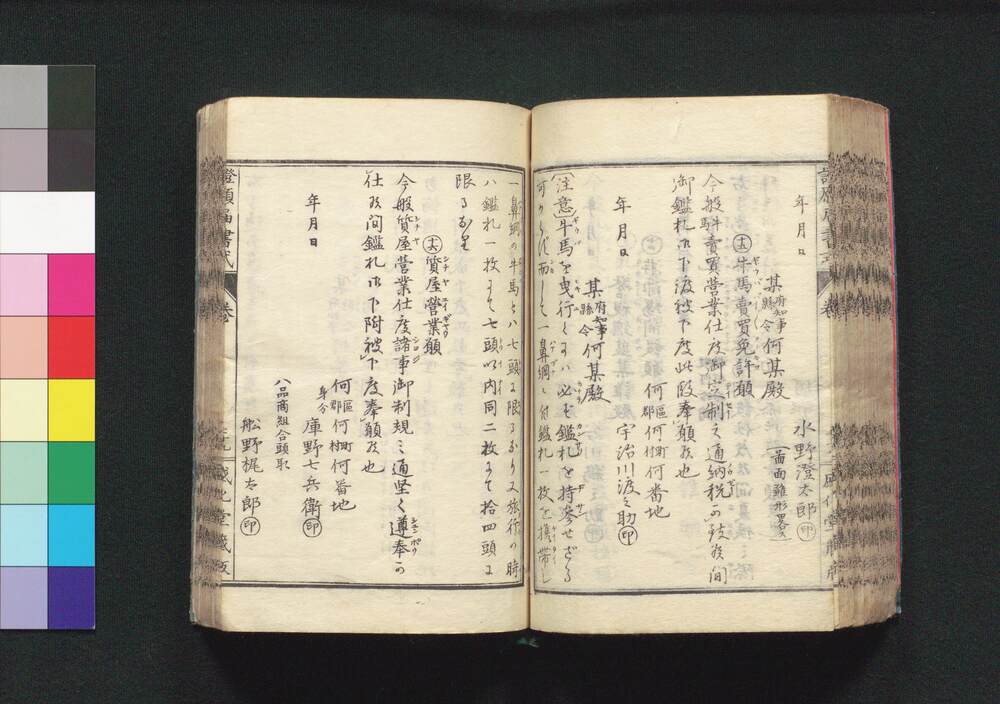 年月日
水野澄太郎㊞
(畧面雛形畧ス)
某 府知事 縣令 何某殿
牛馬賣買免許願
今般馬賣買營業仕度御定制之通納税可致候間
御鑑札御下渡被下度此段奉願候也
何 區郡 何 村町 何番地
宇治川渡之助㊞
年月日
某 府知事 縣令 何某殿
(注意)牛馬を曳行くには必ず鑑札を持參せざる
可からず而して一鼻綱に付鑑札一枚を携帶し
一鼻綱の牛馬とハ七頭に限るなり又旅行の時
ハ鑑札一枚にて七頭以内同二枚にて拾四頭に
限るなり
質屋營業願
今般質屋營業仕度諸事御制規之通堅く遵奉可
仕候間鑑札御下附被下度奉願候也
何 區郡 何 村町 何番地
身分
庫野七兵衞㊞
年月日
八品商組合頭取
舩野梶太郎㊞
證願届書式
卷
藏版